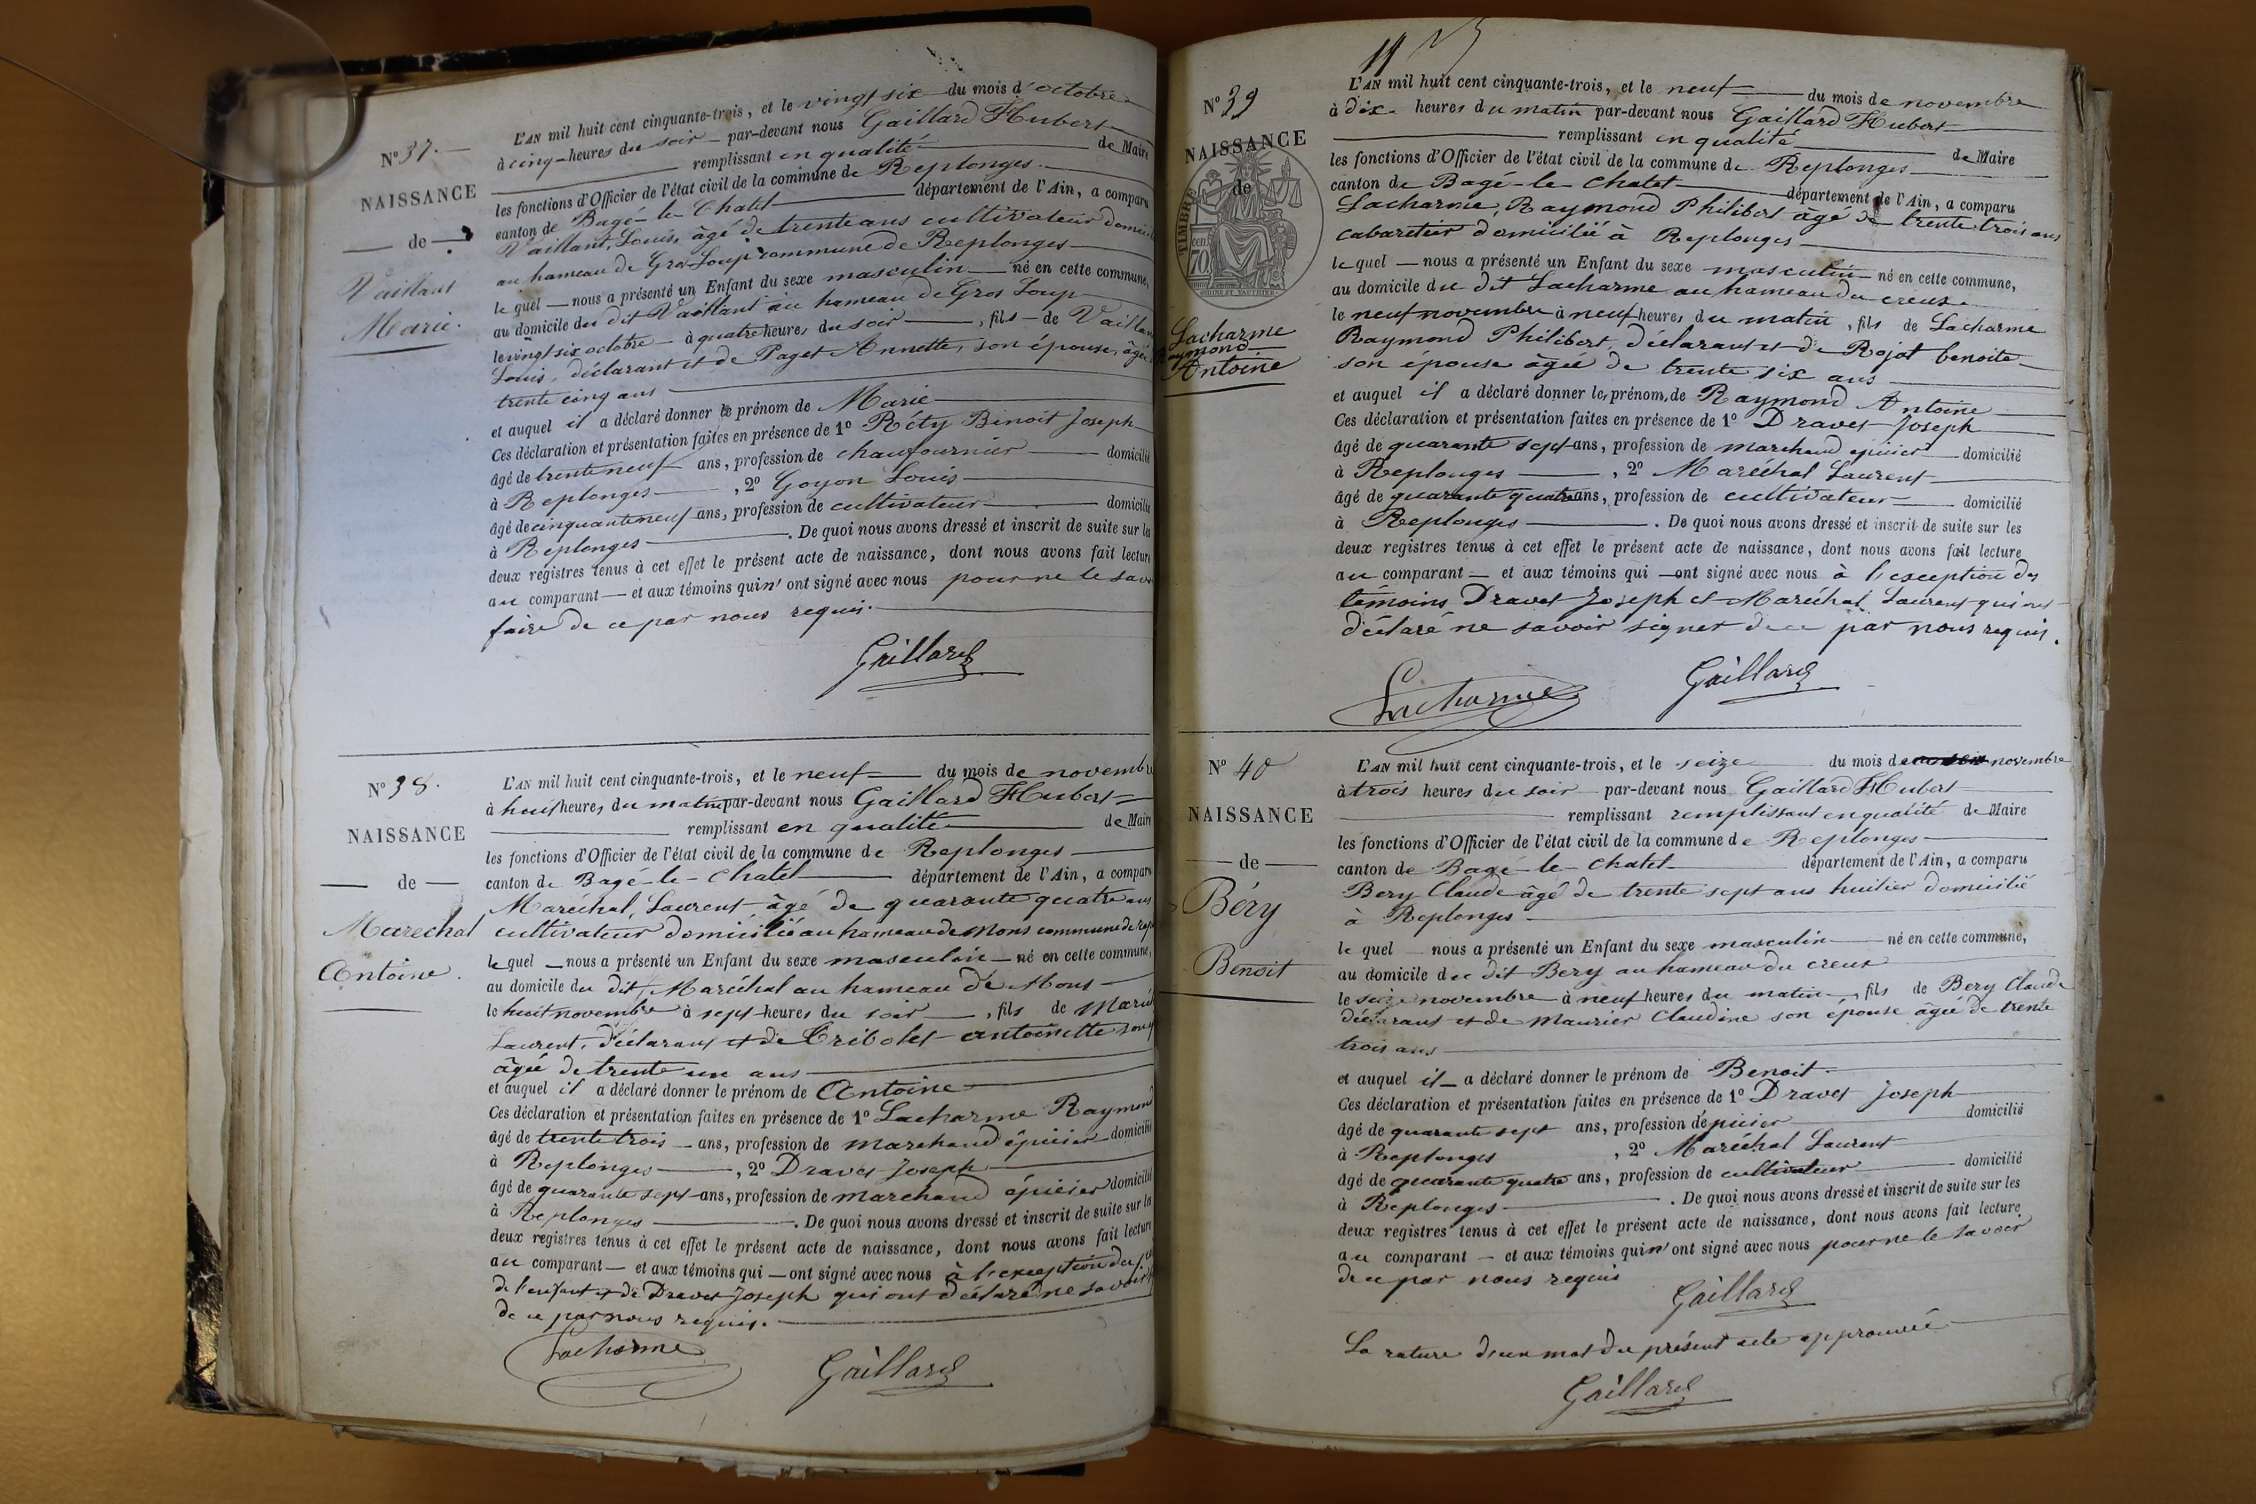 N° 37.
NAISSANCE
de
Vaillant
Marie.
L'AN mil huit cent cinquante-trois, et le vingt six du mois d'octobre
à cinq heures du soir par-devant nous Gaillard Hubert
remplissant en qualité de Maire
les fonctions d'Officier de l'état civil de la commune de Replonges
canton de Bagé-le-Chatel département de l'Ain, a comparu
Vaillant, Louis, âgé de trente ans cultivateur
au hameau de Gros Loup commune de Replonges
le quel nous a présenté un Enfant du sexe masculin né en cette commune,
au domicile du dit Vaillant au hameau de Gros Loup
le vingt six octobre à quatre heures du soir, fils de
Louis, déclarant et de Paget Annette, son épouse, âgée
trente cinq ans
et auquel il a déclaré donner le prénom de Marie
Ces déclaration et présentation faites en présence de 1° Réty Binoit Joseph
âgé de trente neuf ans, profession de chaufournier domicilié
à Replonges, 2° Goyon Louis
âgé de cinquante neuf ans, profession de cultivateur domicilié
à Replonges. De quoi nous avons dressé et inscrit de suite sur les
deux registres tenus à cet effet le présent acte de naissance, dont nous avons fait lecture
au comparant et aux témoins qui n'ont signé avec nous pour ne le
faire de ce par nous requis.
Gaillard
N° 38.
NAISSANCE
de
Marechal
Antoine.
L'AN mil huit cent cinquante-trois, et le neuf du mois de novembre
à heures du matin par-devant nous Gaillard Hubert
remplissant en qualité de Maire
les fonctions d'Officier de l'état civil de la commune de Replonges
canton de Bagé-le-Chatel département de l'Ain, a comparu
Maréchal, Laurent âgé de quarante quatre ans
cultivateur domicilié au hameau de Mons commune de
le quel nous a présenté un Enfant du sexe masculin né en cette commune,
au domicile du dit Maréchal au hameau de Mons
le huit novembre à sept heures du soir, fils de
Laurent, déclarant et de Tribolet antoinette
âgée de trente un ans
et auquel il a déclaré donner le prénom de Antoine
Ces déclaration et présentation faites en présence de 1° Lacharme Raymond
âgé de trente trois ans, profession de marchand épicier domicilié
à Replonges, 2° Dravet Joseph
âgé de quarante sept ans, profession de marchand épicier domicilié
à Replonges. De quoi nous avons dressé et inscrit de suite sur les
deux registres tenus à cet effet le présent acte de naissance, dont nous avons fait lecture
au comparant et aux témoins qui ont signé avec nous à l'exception du
de l'enfant et de Dravet Joseph qui ont déclaré ne savoir
de ce par nous requis.
Lacharme
Gaillard
N° 39
NAISSANCE
de
TIMBRE
70
Lacharme
Raymond
Antoine
L'AN mil huit cent cinquante-trois, et le neuf du mois de novembre
à dix heures du matin par-devant nous Gaillard Hubert
remplissant en qualité de Maire
les fonctions d'Officier de l'état civil de la commune de Replonges
canton de Bagé-le-Chatel département de l'Ain, a comparu
Lacharme, Raymond Philibert âgé de trente trois ans
cabaretier domicilié à Replonges
le quel nous a présenté un Enfant du sexe masculin né en cette commune,
au domicile du dit Lacharme au hameau du creux
le neuf novembre à neuf heures du matin, fils de Lacharme
Raymond Philibert, déclarant et de Rojat benoite
son épouse âgée de trente six ans
et auquel il a déclaré donner les prénom, de Raymond Antoine
Ces déclaration et présentation faites en présence de 1° Dravet Joseph
âgé de quarante sept ans, profession de marchand épicier domicilié
à Replonges, 2° Maréchal Laurent
âgé de quarante quatre ans, profession de cultivateur domicilié
à Replonges. De quoi nous avons dressé et inscrit de suite sur les
deux registres tenus à cet effet le présent acte de naissance, dont nous avons fait lecture
au comparant et aux témoins qui ont signé avec nous à l'exception des
témoins Dravet Joseph et Maréchal Laurent qui ont
déclaré ne savoir signer de ce par nous requis.
Lacharme
Gaillard
N° 40
NAISSANCE
de
Béry
Benoit
L'AN mil huit cent cinquante-trois, et le seize du mois de novembre
à trois heures du soir par-devant nous Gaillard Hubert
remplissant remplissant en qualité de Maire
les fonctions d'Officier de l'état civil de la commune de Replonges
canton de Bagé-le-Chatel département de l'Ain, a comparu
Bery Claude âgé de trente sept ans huilier domicilié
à Replonges
le quel nous a présenté un Enfant du sexe masculin né en cette commune,
au domicile du dit Bery au hameau du creux
le seize novembre à neuf heures du matin, fils de Bery Claude
déclarant et de Maurier Claudine son épouse âgée de trente
trois ans
et auquel il a déclaré donner le prénom de Benoit
Ces déclaration et présentation faites en présence de 1° Dravet Joseph
âgé de quarante sept ans, profession d'épicier domicilié
à Replonges, 2° Maréchal Laurent
âgé de quarante quatre ans, profession de cultivateur domicilié
à Replonges. De quoi nous avons dressé et inscrit de suite sur les
deux registres tenus à cet effet le présent acte de naissance, dont nous avons fait lecture
au comparant et aux témoins qui n'ont signé avec nous pour ne le savoir
de ce par nous requis
Gaillard
La rature d'un mot du présent acte approuvée
Gaillard